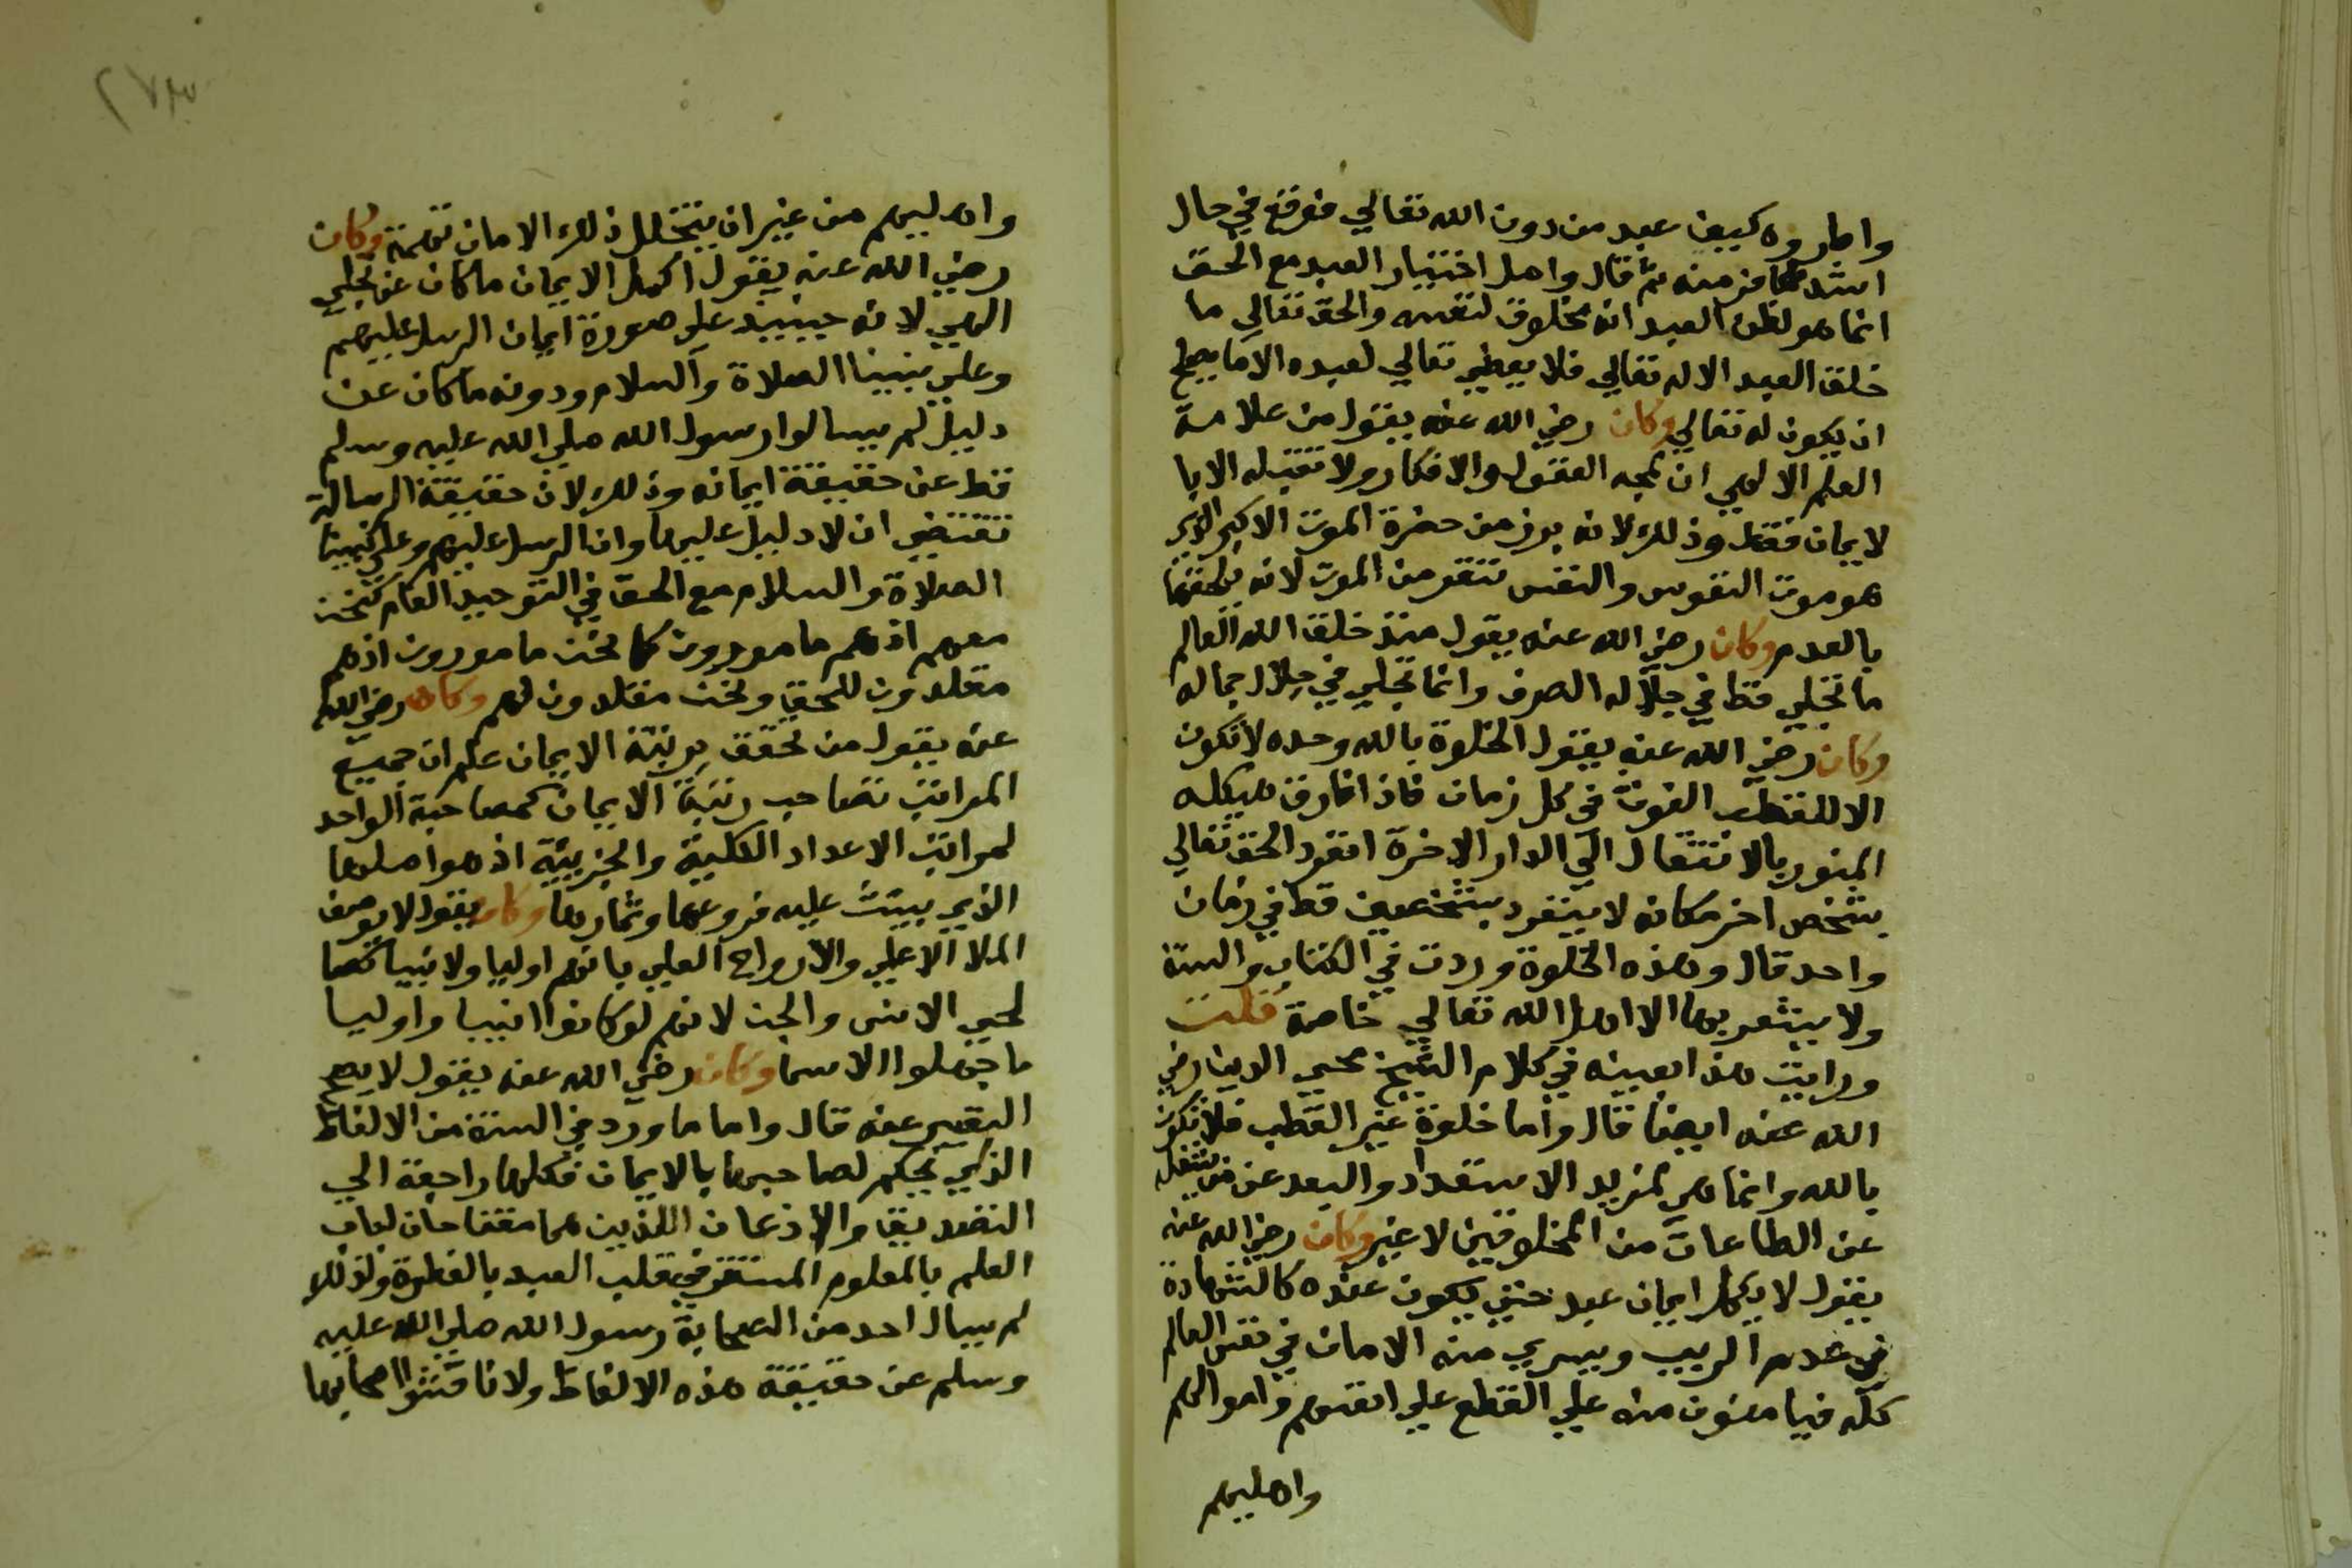 واطروه كيف عبد من دون الله تعالي فوقع في حال
اشد مما فر منه ثم قال واصل اختيار العبد مع الحق
انما هو لظن العبد انه مخلوق لنفسه والحق تعالي ما
خلق العبد الا له تعالي فلا يعطي تعالي لعبده الا ما يصلح
ان يكون له تعالي وكان رضي الله عنه يقول من علامة
العلم الالهي ان تمجه العقول والافكار ولا تقبله الا با
لايمان فقط وذلك لانه برز من حضرة الموت الاكبر الذي
هو موت النفوس والنفس تنفر من الموت لانه يلحقها
بالعدم وكان رضي الله عنه يقول منذ خلق الله العالم
ما تجلي قط في جلاله الصرف وانما تجلي في جلال جماله
وكان رضي الله عنه يقول الخلوة بالله وحده لا تكون
الا للقطب الغوث في كل زمان فاذا فارق هيكله
المنور بالانتقال الي الدار الاخرة انفرد الحق تعالي
بشخص اخر مكانه لا ينفرد بشخصين قط في زمان
واحد قال وهذه الخلوة وردت في الكتاب والسنة
ولا يشعر بها الا اهل الله تعالي خاصة قلت
ورايت هذا بعينه في كلام الشيخ محيي الدين رضي
الله عنه ايضا قال واما خلوة غير القطب فلا تكون
بالله وانما هي لمزيد الاستعداد والبعد عن من يشغله
عن الطاعات من المخلوقين لا غير وكان رضي الله عنه
يقول لا يكمل ايمان عبد حتي يكون عنده كالشهادة
في عدم الريب ويسري منه الامان في نفس العالم
كله فيامنون منه علي القطع علي انفسهم واموالهم
واهليهم
٢٧٣
واهليهم من غير ان يتخلل ذلك الامان تهمة وكان
رضي الله عنه يقول اكمل الايمان ما كان عن تجلي
الهي لانه حينيذ علي صورة ايمان الرسل عليهم
وعلي نبينا الصلاة والسلام ودونه ما كان عن
دليل لم يسالوا رسول الله صلي الله عليه وسلم
قط عن حقيقة ايمانه وذلك لان حقيقة الرسالة
تقتضي ان لا دليل عليها وان الرسل عليهم وعلي نبينا
الصلاة والسلام مع الحق في التوحيد العام كنحن
معهم اذ هم مامورون كما نحن مامورون اذ هم
مقلدون للحق ونحن مقلدون لهم وكان رضي الله
عنه يقول من تحقق برتبة الايمان علم ان جميع
المراتب تصاحب رتبة الايمان كمصاحبة الواحد
لمراتب الاعداد الكلية والجزيية اذ هو اصلها
الذي يبنت عليه فروعها وثمارها وكان يقول لا يوصف
الملا الاعلي والارواح العلي بانهم اوليا ولا انبيا كصا
لحي الانس والجن لانهم لو كانوا انبيا واوليا
ما جهلوا الاسما وكان رضي الله عنه يقول لا يصح
التعبير عنه قال واما ما ورد في السنة من الالفاظ
الذي يحكم لصاحبها بالايمان فكلها راجعة الي
التصديق والاذعان اللذين هما مفتاحان لباب
العلم بالمعلوم المستقر في قلب العبد بالفطرة ولذلك
لم يسال احد من الصحابة رسول الله صلي الله عليه
وسلم عن حقيقة هذه الالفاظ ولا ناقشوا اصحابها